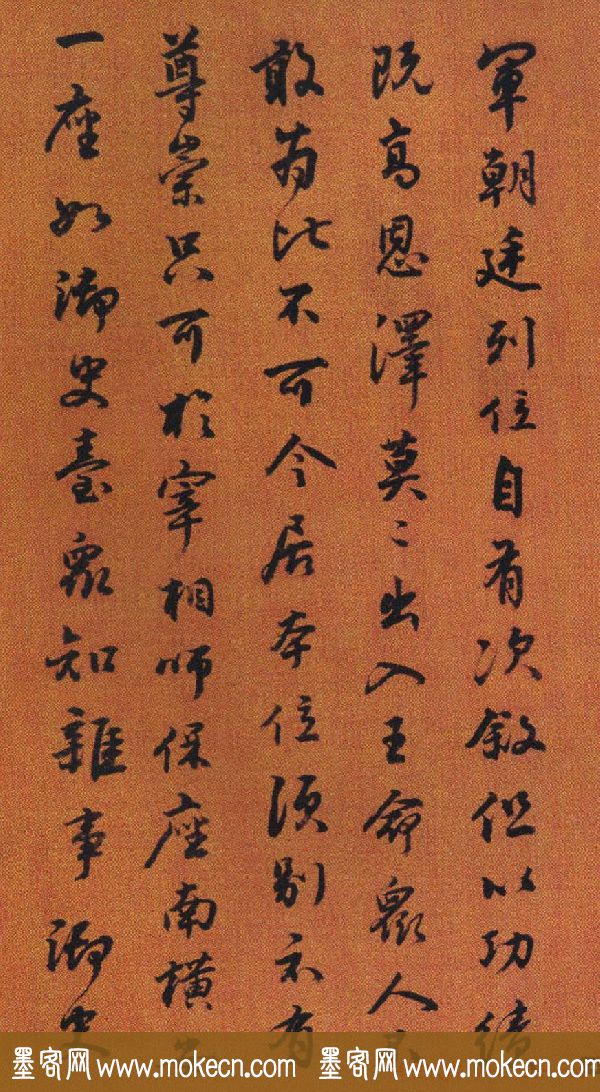 軍朝廷列位自有次敘但以功績
既高恩澤莫二出入王命眾人
敢為比不可令居本位須別示有
尊崇只可於宰相師保座南橫
一座如御史臺眾知雜事御史
墨客网 www.mokecn.com 墨客网 www.mokecn.com